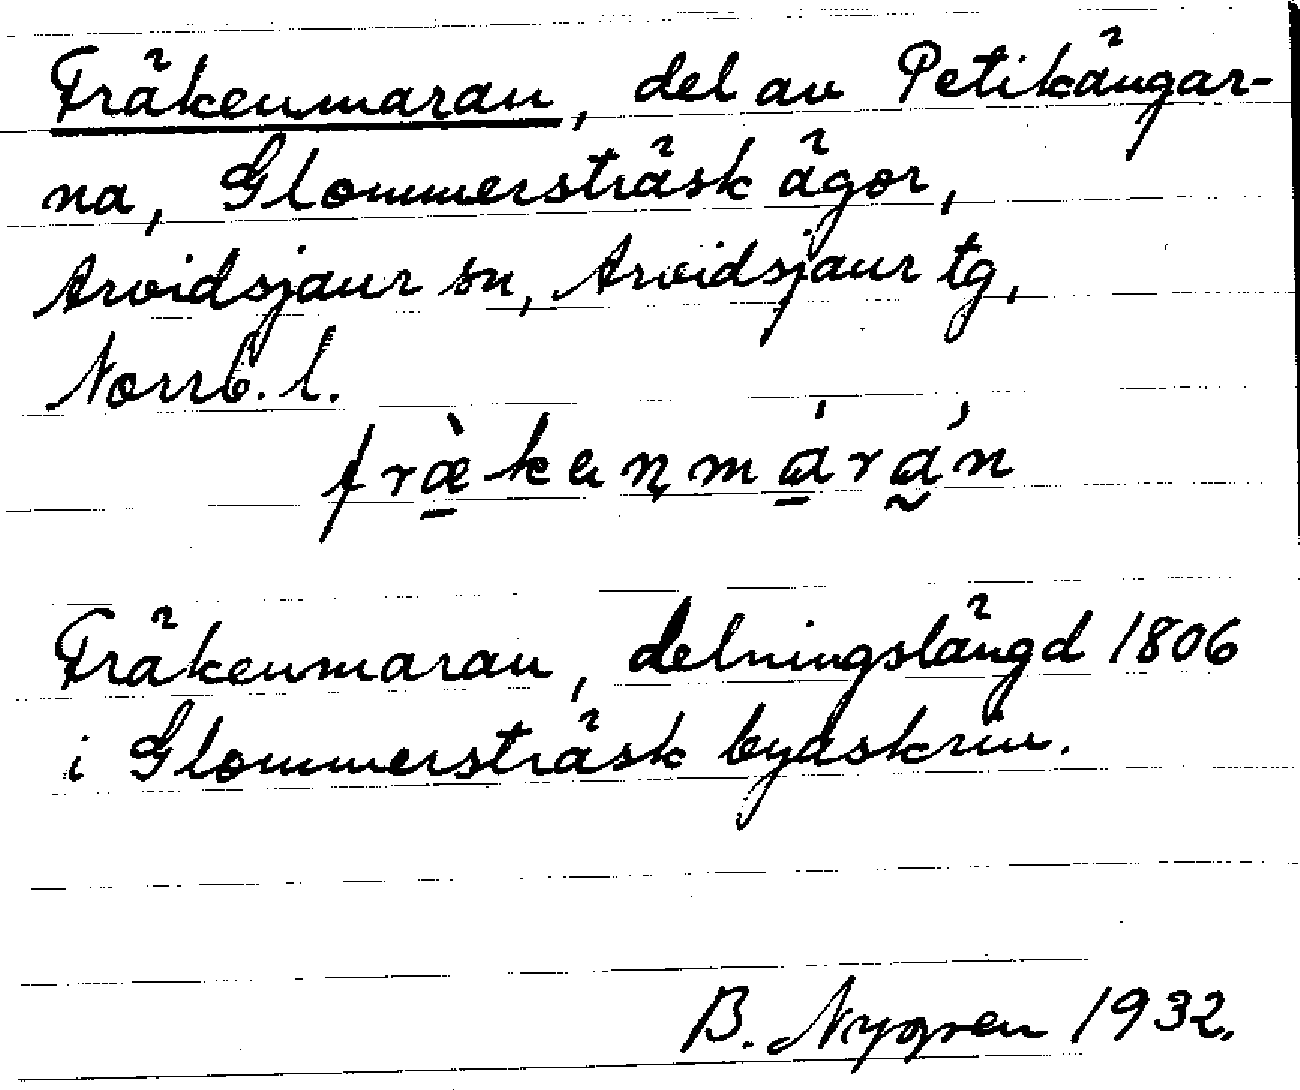 Fräkenmaran, del av Petikängar-
na, Glommersträsk ägor,
Arvidsjaur sn, Arvidsjaur tg,
Norrb. l.
fræ̀kenmárán
Fräkenmaran, delningslängd 1806
i Glommersträsk byaskrin.
B. Nygren 1932.